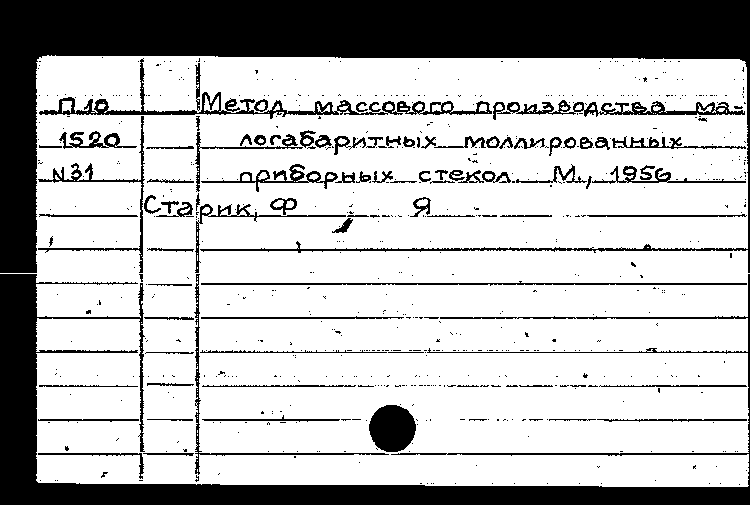 П 10 Метод массового производства ма-
1520 логабаритных моллированных
N31 приборных стекол. М., 1956.
Старик, Ф Я